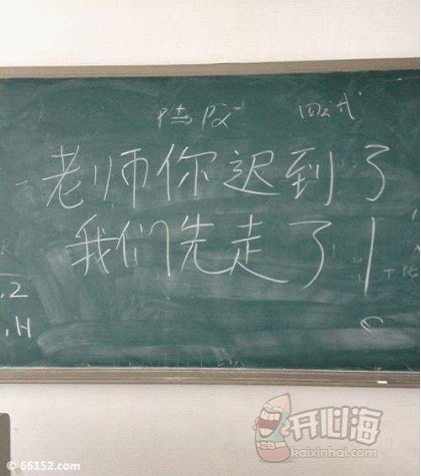 老师你迟到了
我们先走了！
,2
,H
开心海
kaixinhai.com
© 66152.com